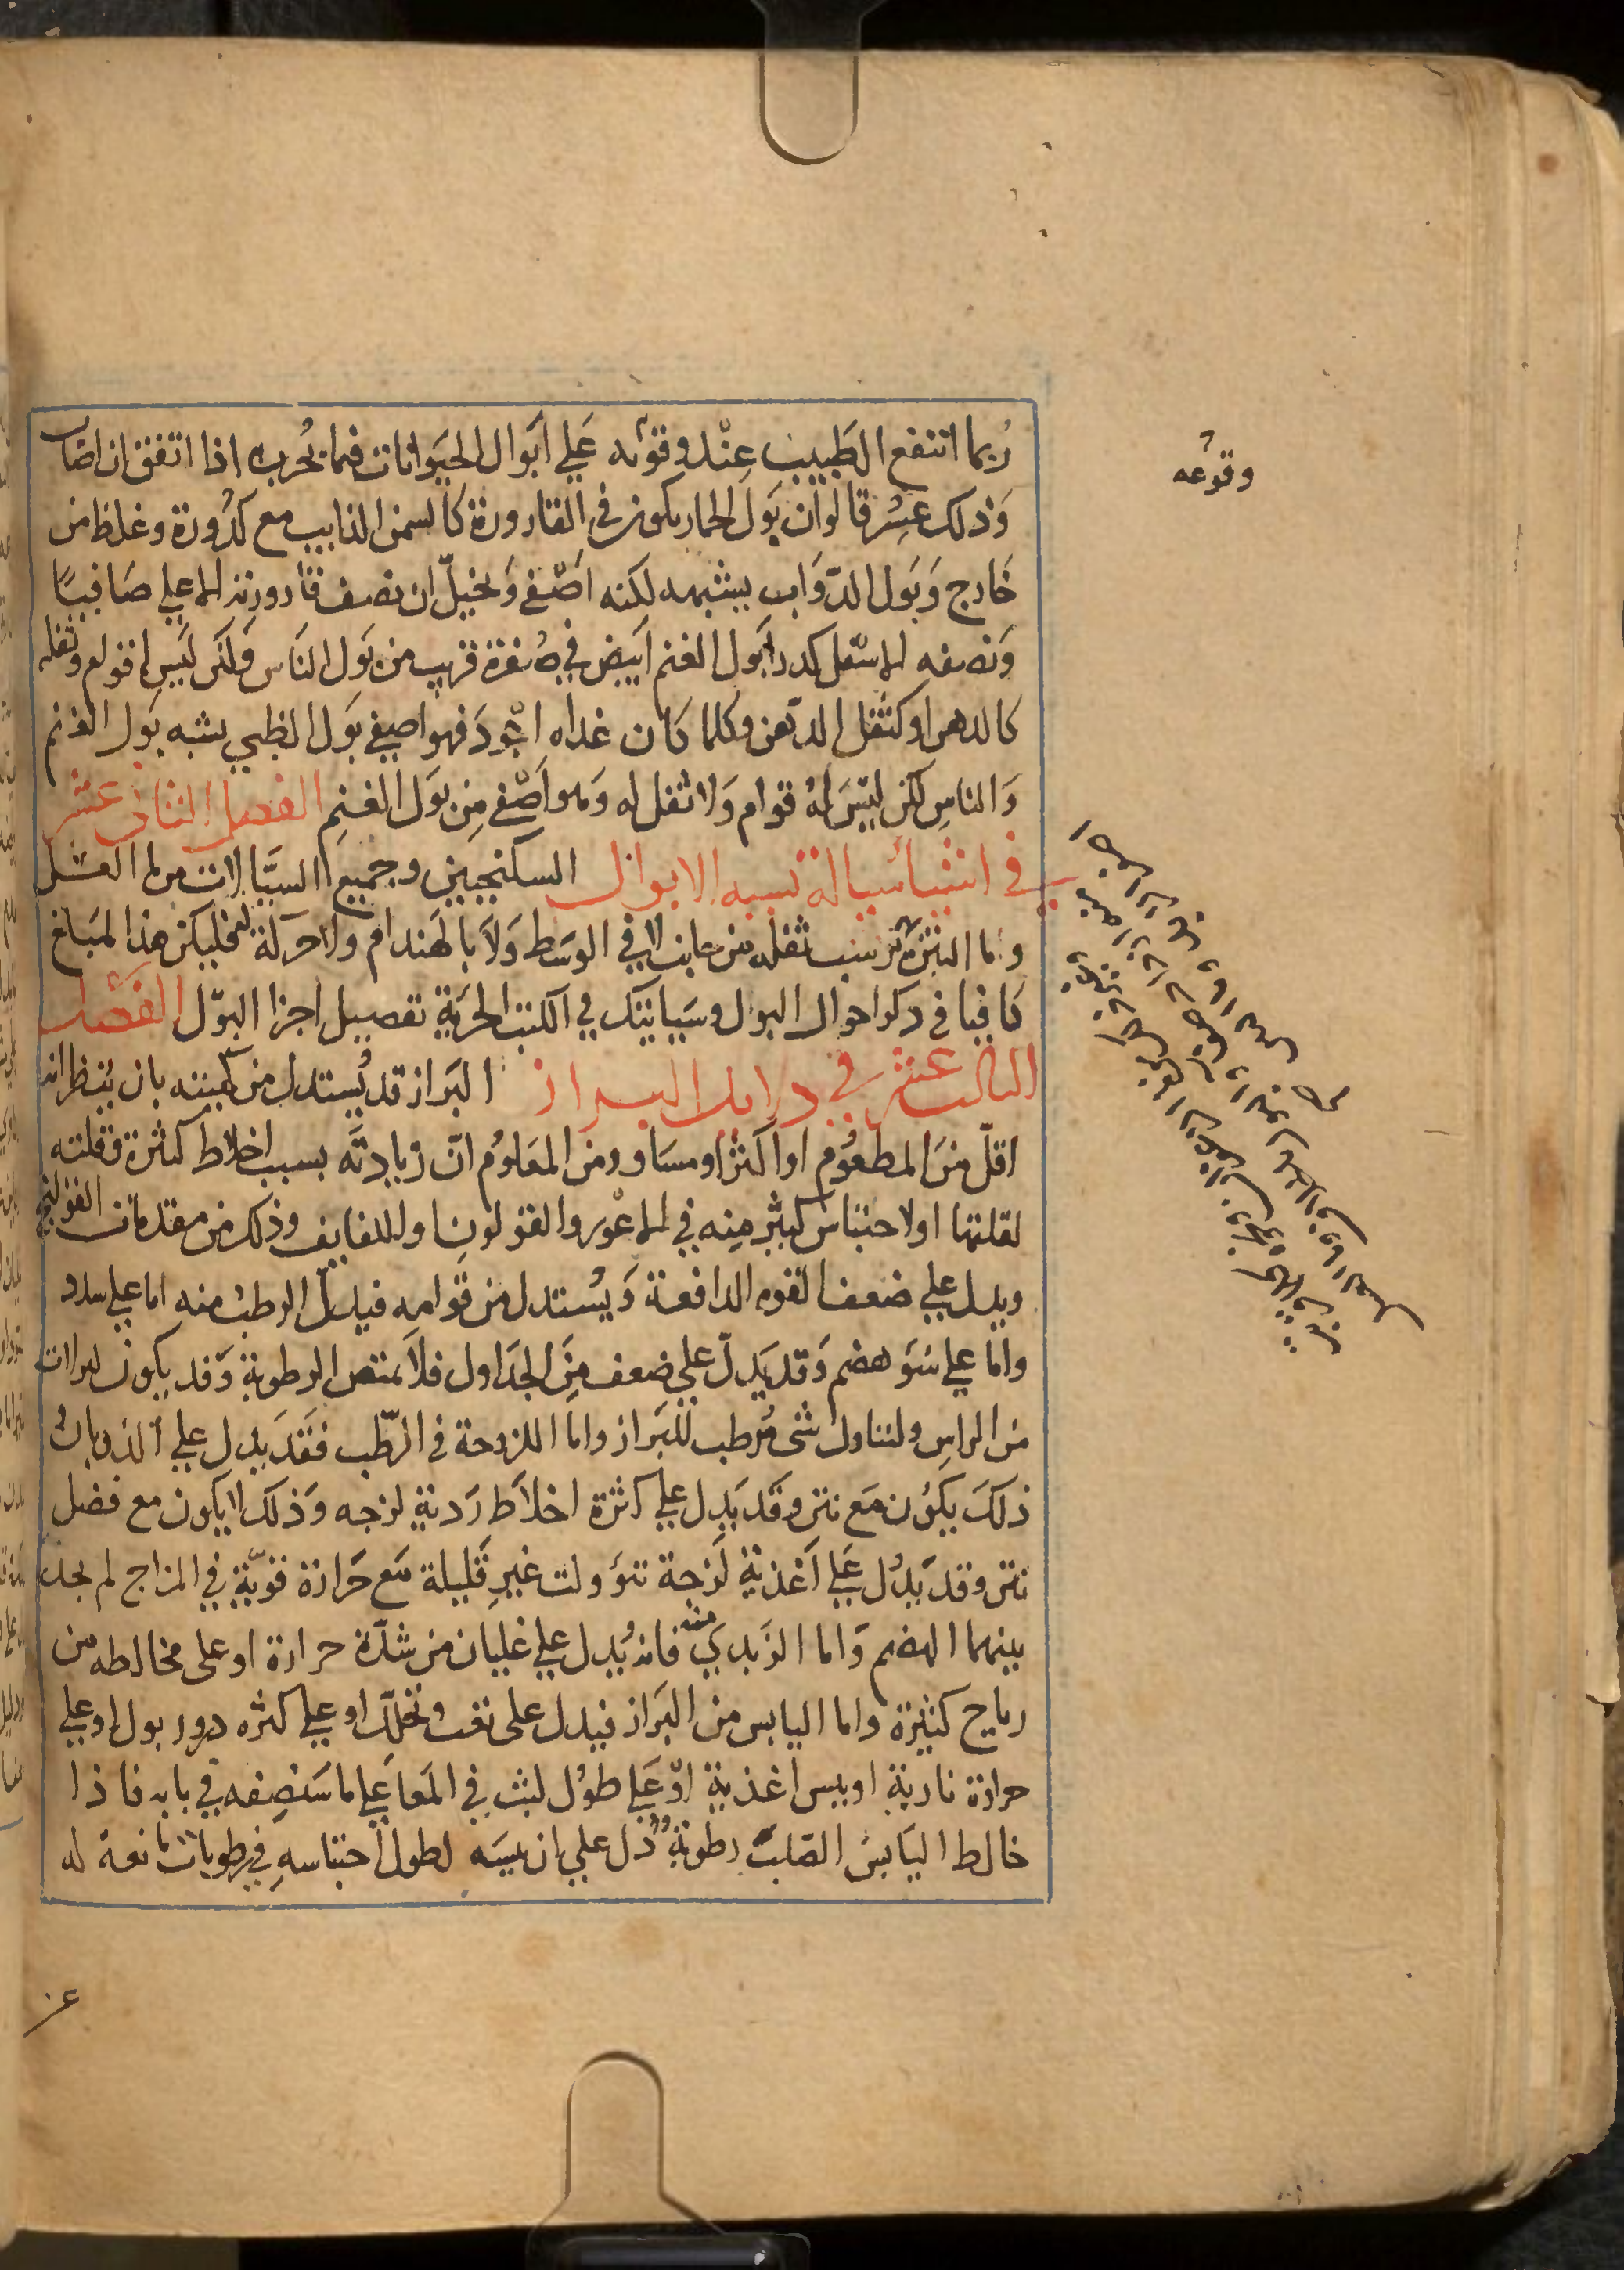 رُبما انتفع الطَبيب عِنْد وقوئه عَلي اَبوال الحيَوانات فيما يُجرب به اذا اتفق ان اصَاب
وَذلك عسِر قالوا ان بَول الحمار يكون في القارورة كالسمن الذايب مع كدُورة وغلظ من
خَارج وَبَول الدّوَاب يشبهه لكنه اصْفي وَيخيلّ ان نصف قارورته الاعلي صَافيًا
وَنصفه الاسفل كدر وَبول الغنم ابيض في صُفرة قريب من بَول الناس ولكن ليَس له قوام وثفله
كالدهن او كثفل الدّهن وكلما كان غداه اجْودَ فهو اصفي بَول الظبي يشبه بَول الغنم
وَالناسِ لكن ليَسَ لهُ قوام وَلا ثفل له وَهو اَصْفي مِن بَول الغنمِ الفصل الثاني عشر
في اشيا سيالة تشبه الابوال السكنجبين وجميع السيَّالات من ما العسَل
وما التين ترسب ثفله من جانب لا في الوسَط وَلاَ بالهندام ولا حركة له فليكن هذا المبَلغ
كافيا في ذكر احوال البول وسَياتيك في الكتب الجزية تفصيل اجزا البوّل الفصْل
الثالث عشر في دلايل البراز البَراز قد يُستدل من كميته بان ينظر انه
اقلّ منَ المطعُوم او اكثر او مسَاو ومن المعَلوُم انّ زيادتَه بسبب اخلاط كثرة وقلته
لقلتها او لاحتباس كثير مِنه في الاعْور والقولون او اللفايف وذلك من مقدمات القولنج
ويدل علي ضعف القوه الدافعة وَيُستدل من قوامه فيدلّ الرطب منه اما علي سدد
واما علي سَوَ هضم وَقد يَدلّ علي ضعف مِنَ الجدَاول فلاَ يمتص الرطوبة وَقد يكون لنزلات
من الراسِ ولتناول شى مُرطب للبَراز واما اللزوجة في الرّطب فقَد يدل علي الذوبان و
ذلكَ يكوُن مَع نتن وقَد يَدل علي كثرة اخلاَط رَدية لزجه وَذلك لا يكون مع فضل
نتن وقد يَدُل عَلي اَغذية لزَجة تنوولت غير قَليلة مَع حَرارة قويّة في المزاج لم يجد
بينهما الهضم وَاما الزَبدي منه فانه يُدل علي غليان من شدّة حرارة او على مخالطه من
رياح كثيرة واما اليابس من البَراز فيدل على تعب وتخلّل او علي كثره درور بول او علي
حرارة نارية او يبس اغذية اوْ عَلي طوُل لبث في المعَا عَلي ما سَنصِفه في بابه فاذا
خالط اليَابسَ الصَلبَ رطوبة دَل علي ان يبسَه لطول احتباسهِ في رطوبات مانعة له
وقوعه